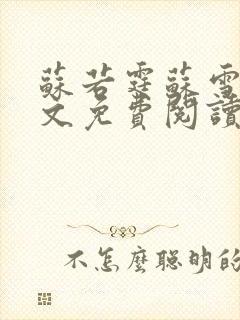 蘇若霆蘇雪
文免費閱讀
不怎麼聰明的